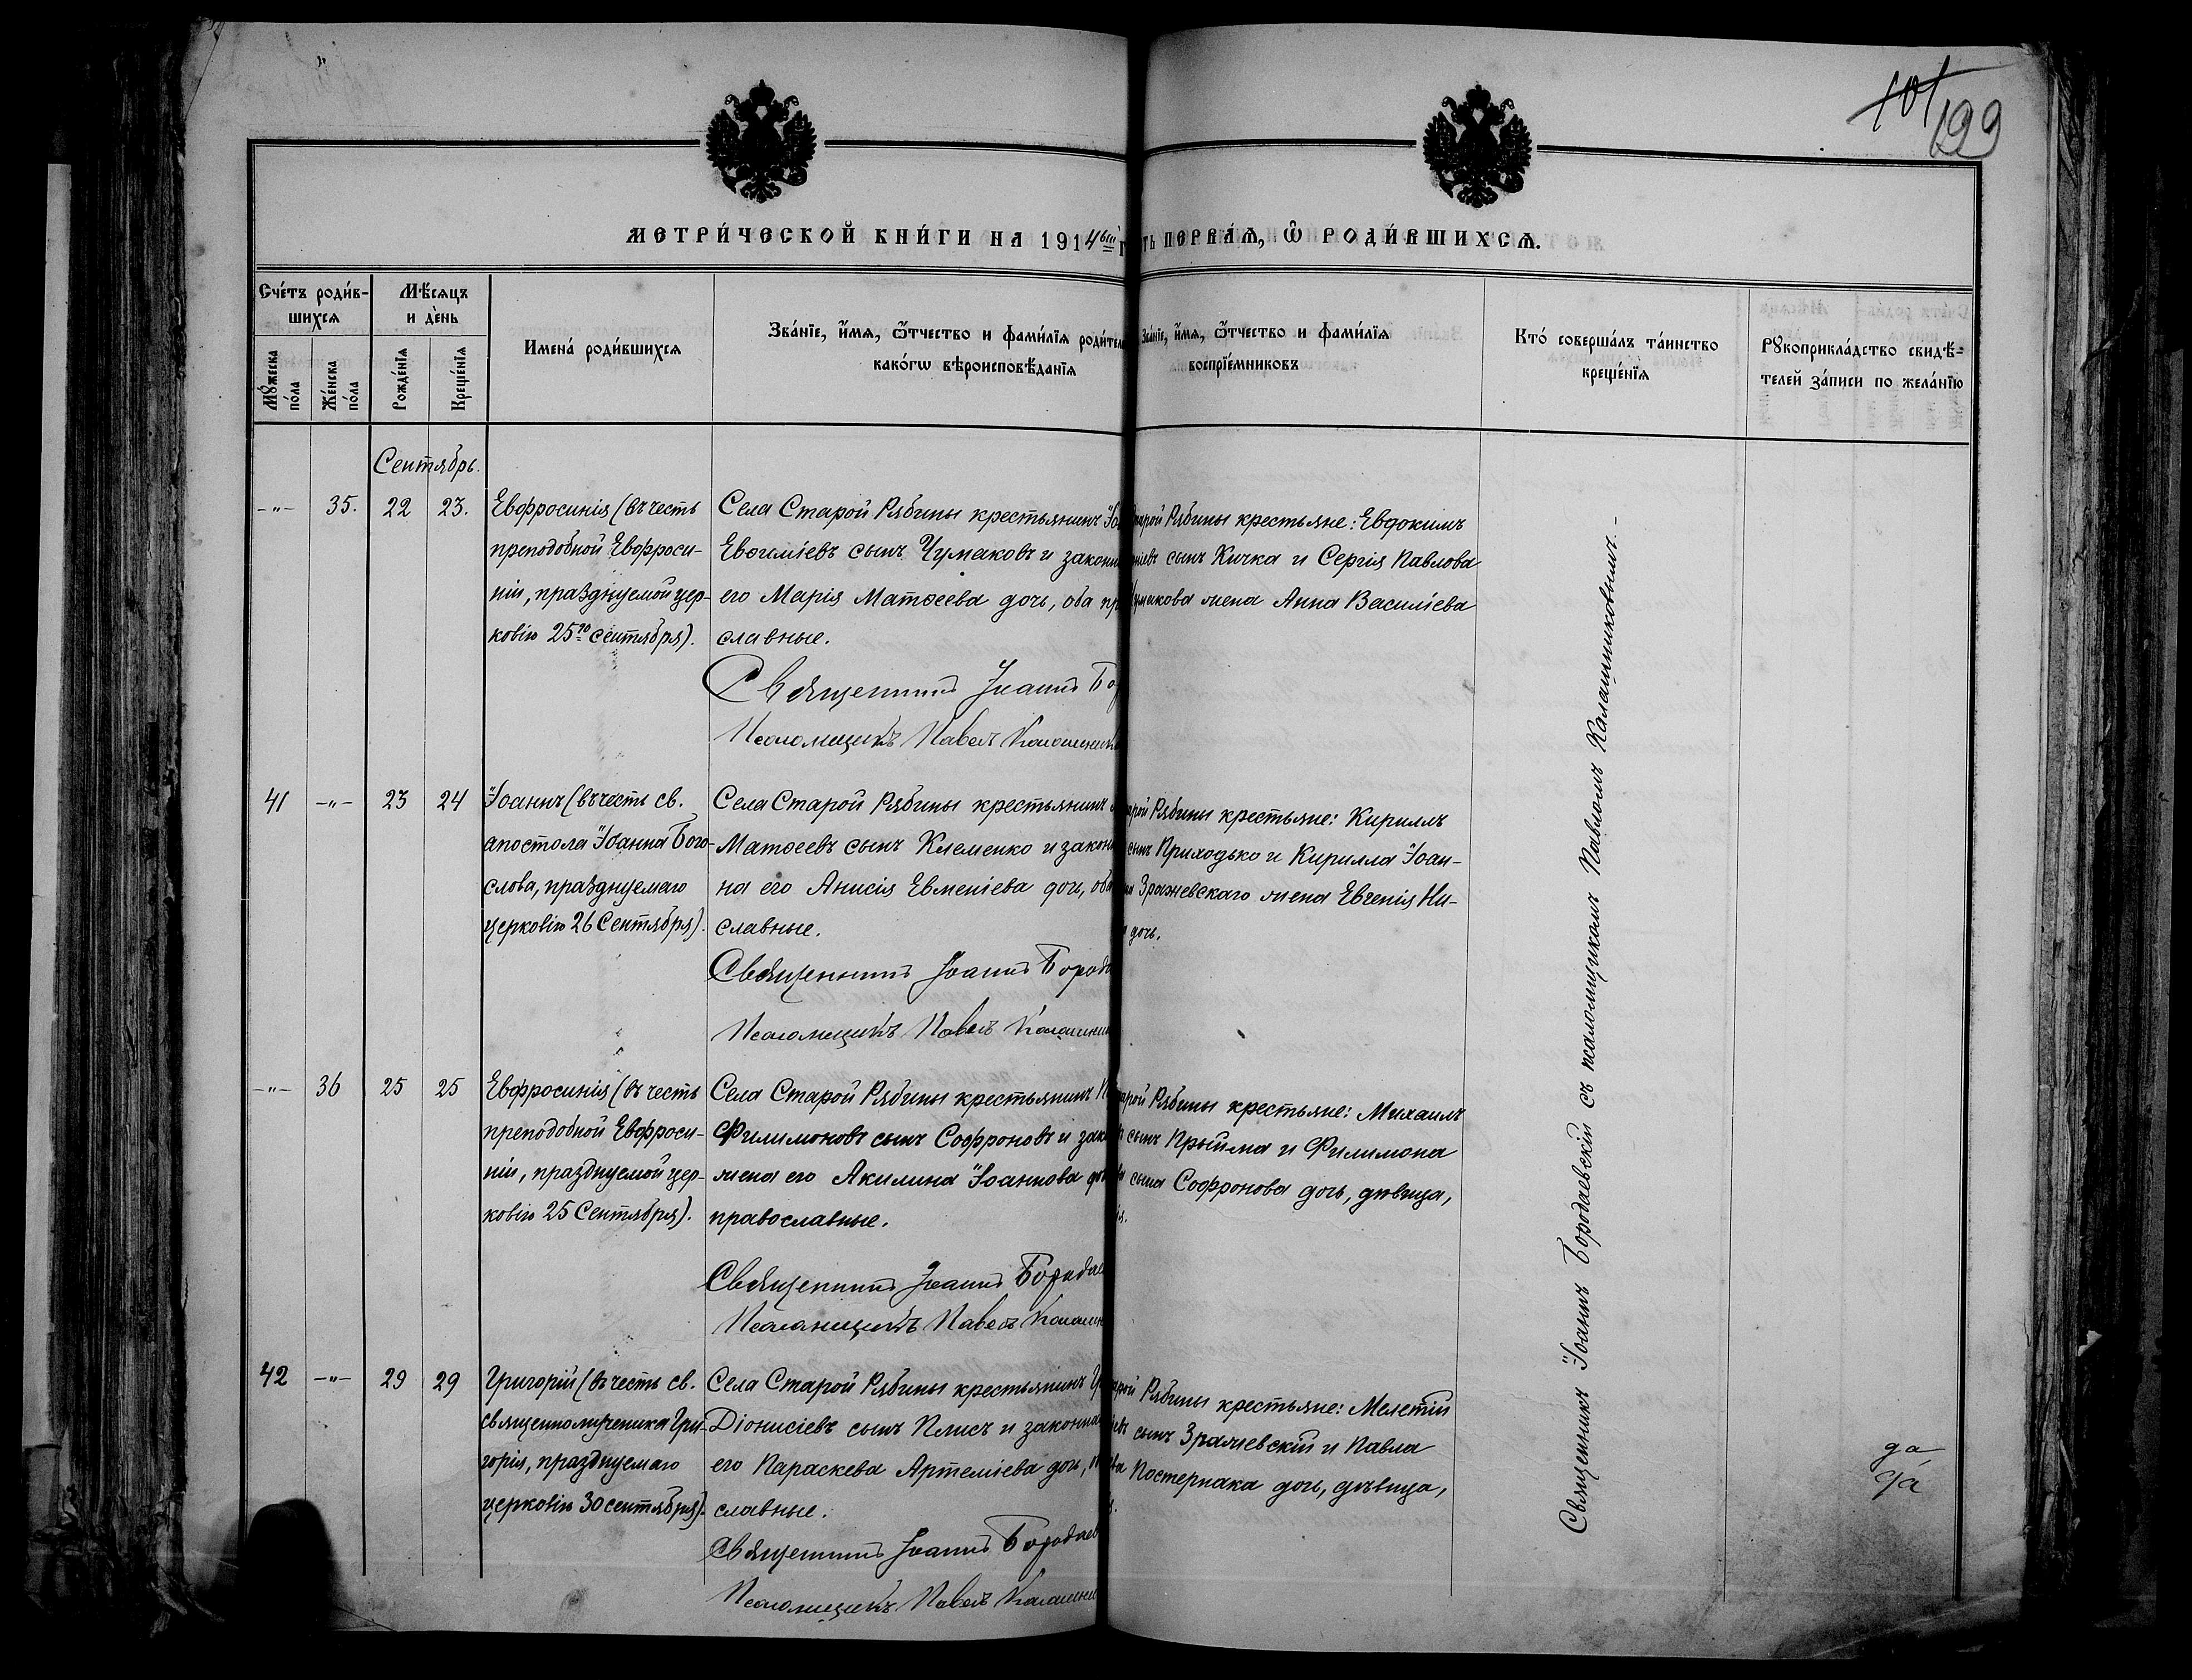 101
199
МЕТРИ́ЧЕСКОЙ КНИ́ГИ НА 1914 вый
ПЕРВАѦ, Ѡ РОДИ́ВШИХСѦ.
Сче́тъ роди́в-
шихсѧ
Мѣ́сѧцъ
и де́нь
Мꙋ́жеска по́ла
Же́нска по́ла
Рожде́нїѧ
Креще́нїѧ
Имена́ роди́вшихсѧ
Зва́нїе, и́мѧ, ѻ́тчество и фами́лїѧ роди́тел
како́гѡ вѣроисповѣ́данїѧ
Зва́нїе, и́мѧ, ѻ́тчество и фами́лїѧ
воспрїе́мниковъ
Кто́ соверша́лъ та́инство
креще́нїѧ
Рꙋкоприкла́дство свидѣ́=
телей за́писи по жела́нїю
Сентябрь.
-"- 35. 22 23.
Евфросинія (въ честь
преподобной Евфроси-
ніи, празднуемой цер-
ковію 25го сентября).
Села Старой Рябины крестьянинъ
Евѳиміевъ сынъ Чумаковъ и законн
его Марія Матѳеева дочь, оба пр
славные.
Священникъ Іоаннъ Бо
Псаломщикъ Павелъ Калашник
арой Рябины крестьяне: Евдокимъ
ніевъ сынъ Кичка и Сергія Павлова
Чумакова жена Анна Василіева
41 -"- 23 24
Іоаннъ (въ честь св.
апостола Іоанна Бого-
слова, празднуемаго
церковію 26 Сентября).
Села Старой Рябины крестьянинъ
Матѳеевъ сынъ Клименко и закон
на его Анисія Евменіева дочь, оба
славные.
Священникъ Іоаннъ Борода
Псаломщикъ Павелъ Калашни
арой Рябины крестьяне: Кириллъ
сынъ Приходько и Кирилла Іоан-
Зражевскаго жена Евгенія Ни-
дочь.
-"- 36 25 25
Евфросинія (въ честь
преподобной Евфроси-
ніи, празднуемой цер-
ковію 25 Сентября).
Села Старой Рябины крестьянинъ
Филимоновъ сынъ Софроновъ и зак
жена его Акилина Іоаннова до
православные.
Священникъ Іоаннъ Бородае
Псаломщикъ Павелъ Калаш
арой Рябины крестьяне: Михаилъ
сынъ Прыйма и Филимона
сына Софронова дочь, дѣвица,
42 -"- 29 29
Григорій (въ честь св.
священномученика Гри-
горія, празднуемаго
церковію 30 сентября).
Села Старой Рябины крестьянинъ
Діонисіевъ сынъ Плисъ и законна
его Параскева Артеміева дочь, о
славные.
Священникъ Іоаннъ Бородаев
Псаломщикъ Павелъ Калашни
арой Рябины крестьяне: Мелетій
сынъ Зражевскій и Павла
Постернака дочь, дѣвица,
Священникъ Іоаннъ Бородаевскій съ псаломщикомъ Павломъ Калашниковымъ.-
да
да